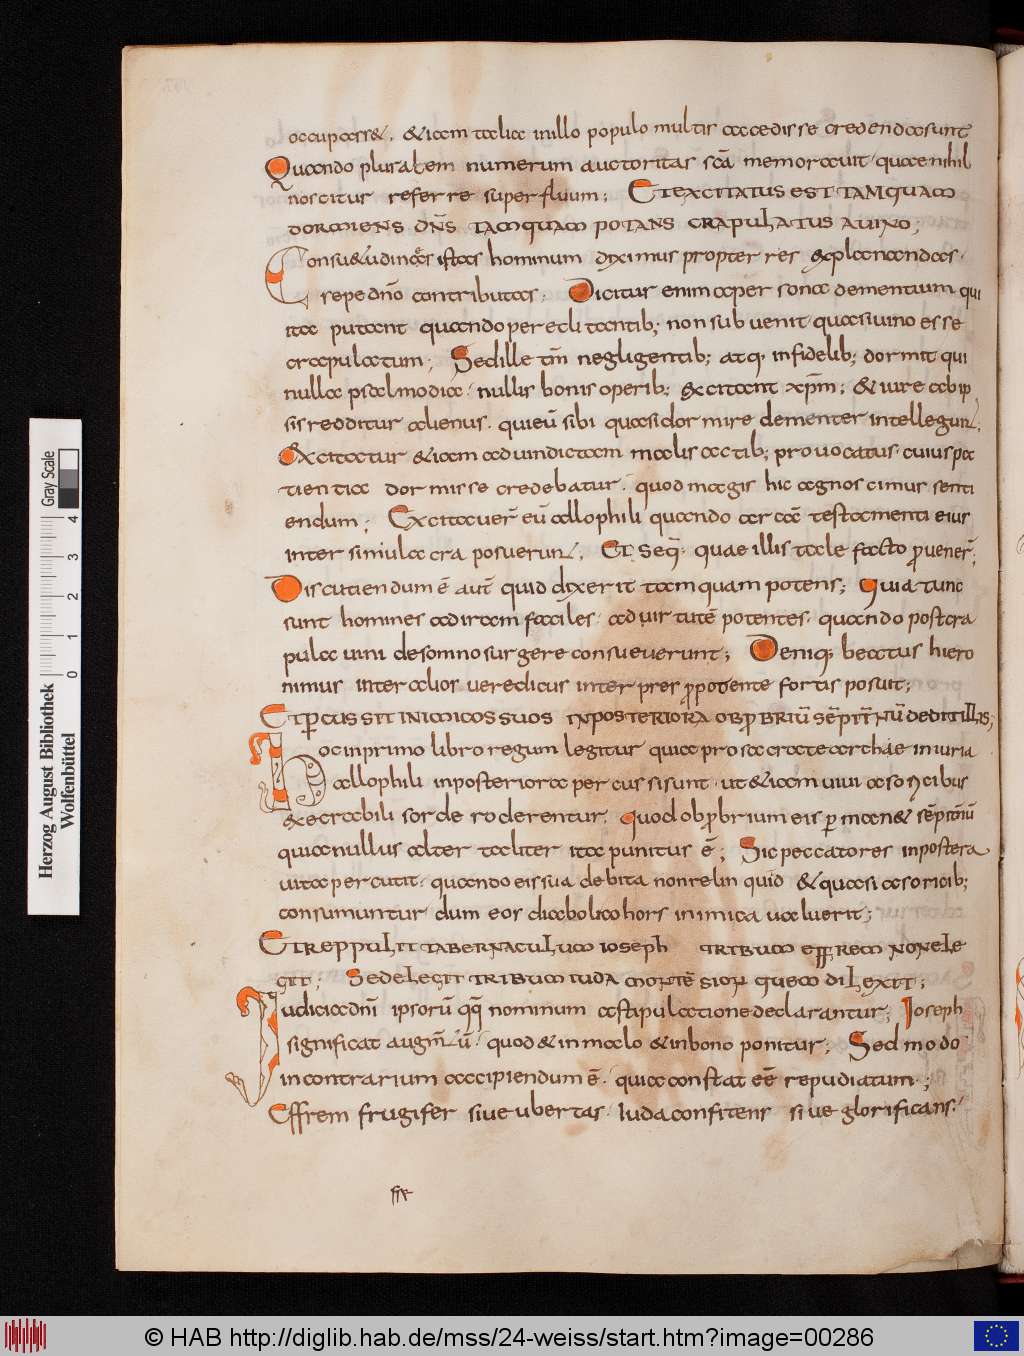 occupasse&. &iam talia inillo populo multis accedisse credendasunt
Quando pluralem numerum auctoritas scā memorauit· quaenihil
noscitur referre superfluum; Etexcitatus est tamquam
dormiens dn̄s tamquam potans crapulatus auino;
Consu&udinaes istas hominum dyximus propter res explanandas·
crepedn̄o contributas· Dicitur enim aper sona dementium qui
ita putant quandopereclitantib; nonsubuenit quasiuino esse
crapulatum; Sedille tm̄ negligentib; atq· infidelib; dormit qui
nulla psalmodia· nullis bonis operib; excitant xp̄m; &iure abip
sis redditur alienus· quieū sibi quasidormire dementer intellegun&,
Excitatur &iam aduindictam malis actib; prouocatus· cuius pa
tientia dormisse credebatur· quod magis hic agnoscimus senti
endum; Excitauer̄ eū allophili quando arcā testamenti eius
inter simulacra posuerun&, Et seq̄· quae illis tale facto prouener̄;
Discutiendum ē aut̄ quid dyxerit tamquam potens; Quia tunc
sunt homines adiram faciles· aduirtutē potentes· quando postcra
pula uini desomno surgere consueuerunt; Deniq· beatus hiero
nimus inter alios ueredicus interpres propotente fortis posuit;
Etpcussit inimicos suos inposteriora obprobriū sēpit̄nū dedit illis;
Hocinprimo libro regum legitur quia prosacra te archae iniuria
allophili inposteriora percussisunt· ut&iam uiui asoricibus
execrabili sorde roderentur· quod obprobrium eis p man& sēpit̄nū
quia nullus alter taliter ita punitus ē; Sic peccatores inpostera
uita percutit· quando eis sua debita nonrelinquid &quasi asoricib;
consumuntur dum eos diabolica hors inimica ualuerit;
Etreppulit tabernaculum ioseph tribum effrem nonele
git; Sedelegit tribum iuda montē sion quem dilexit;
Iudiciadn̄i ipsorū qq̄ nominum astipulatione declarantur; Ioseph
significat augm̄&ū· quod &inmalo &inbono ponitur; Sed modo
incontrarium accipiendum ē· quia constat eē repudiatum·;
Effrem frugifer siue ubertas· Iuda confitens siue glorificans·
Gray Scale
4 3 2 1 0
Herzog August Bibliothek
Wolfenbüttel
© HAB http://diglib.hab.de/mss/24-weiss/start.htm?image=00286